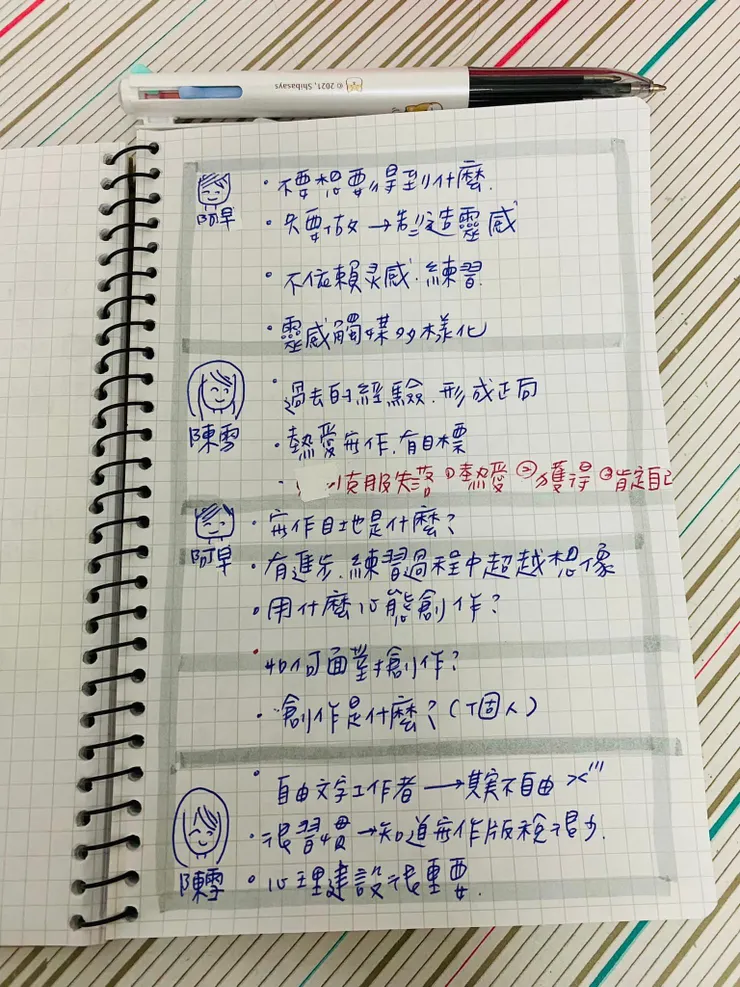 © 2021, Shibasays
阿早
・不要想要得到什麼.
・先要做→製造靈感
・不依賴灵感.練習.
・靈感觸媒多樣化
陳雪
・過去的經驗.形成正向
・熱愛 作.有目標
・克服失落 ①熱愛 ②獲得 ③肯定自己
阿早
・ 作目地是什麼?
・有進步.練習過程中超越想像
・用什麼心態創作?
・如何面對創作?
・創作是什麼?(個人)
陳雪
・自由文字工作者→其實不自由
・很習慣→知道 作版稅很少.
・心理建設很重要.